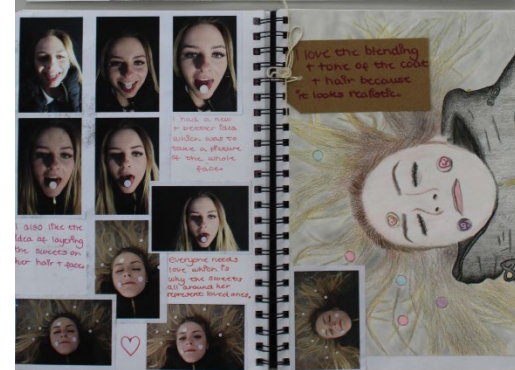 I had a new
+ better idea
which was to
take a picture
of the whole
face.
I also like the
idea of layering
the sweets on
her hair + face.
Everyone needs
love which is
why the sweets
all around her
represent loved ones.
I love the blending
+ tone of the coat
+ hair because
it looks realistic.